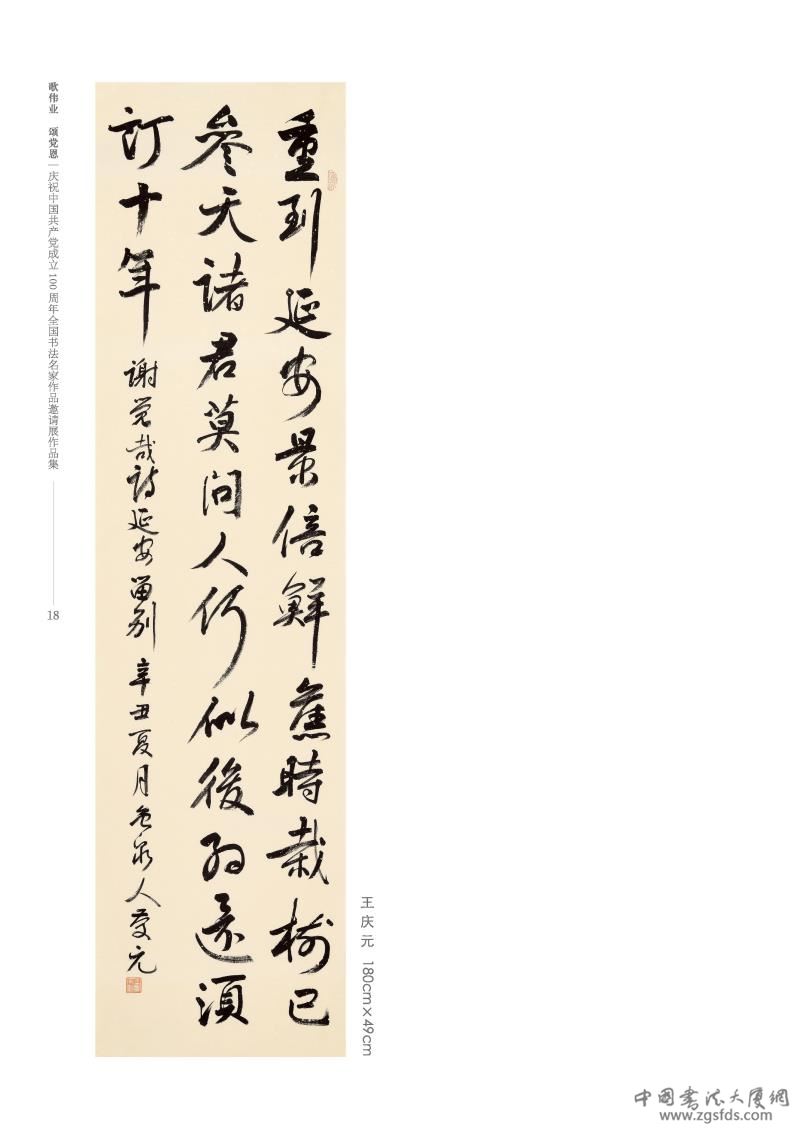 歌伟业 颂党恩 | 庆祝中国共产党成立100周年全国书法名家作品邀请展作品集
18
重到延安景倍鮮舊時栽樹已
參天諸君莫問人何似後約還須
訂十年 謝覺哉詩延安留別 辛丑夏月 人慶元
王庆元 180cm×49cm
中国書法大厦網
www.zgsfds.com